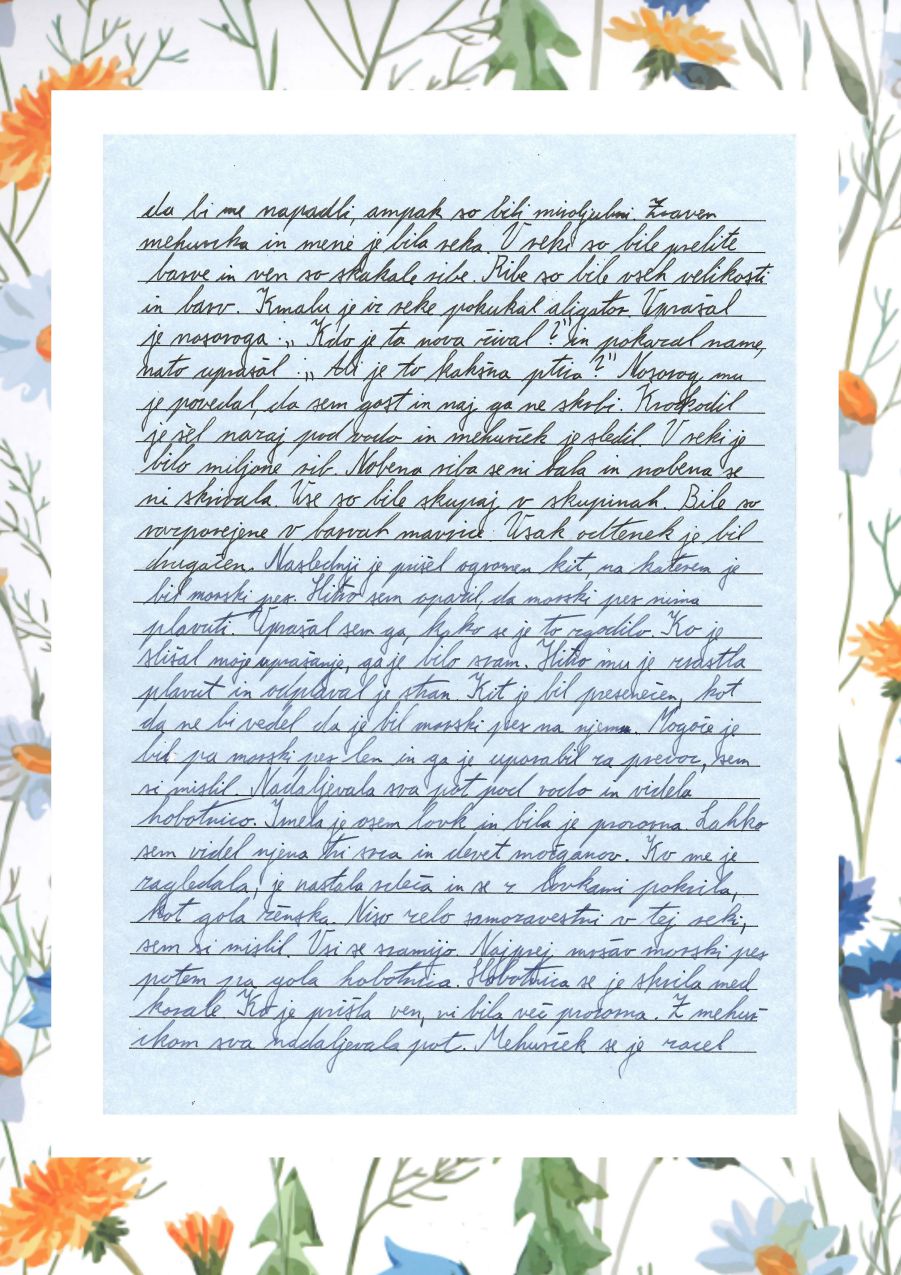 da bi me napadli, ampak so bili miroljubni. Zraven
mehurčka in mene je bila reka. V reki so bile prelite
barve in ven so skakale ribe. Ribe so bile vseh velikosti
in barv. Kmalu je iz reke pokukal aligator. Vprašal
je nosoroga: „Kdo je ta nova žival?" in pokazal name,
nato vprašal: „Ali je to kakšna ptica?" Nosorog mu
je povedal, da sem gost in naj ga ne skrbi. Krokodil
je šel nazaj pod vodo in mehurček je sledil. V reki je
bilo miljone rib. Nobena riba se ni bala in nobena se
ni skrivala. Vse so bile skupaj v skupinah. Bile so
razporejene v barvah mavrice. Vsak odtenek je bil
drugačen. Naslednji je prišel ogromen kit, na katerem je
bil morski pes. Hitro sem opazil, da morski pes nima
plavuti. Vprašal sem ga, kako se je to zgodilo. Ko je
slišal moje vprašanje, ga je bilo sram. Hitro mu je zrastla
plavut in odplaval je stran. Kit je bil presenečen, kot
da ne bi vedel da je bil morski pes na njemu. Mogoče je
bil pa morski pes len in ga je uporabil za prevoz, sem
si mislil. Nadaljevala sva pot pod vodo in videla
hobotnico. Imela je osem lovk in bila je prozorna. Lahko
sem videl njena tri srca in devet možganov. Ko me je
zagledala, je nastala rdeča in se z lovkami pokrila,
kot gola ženska. Niso zelo samozavestni v tej reki,
sem si mislil. Vsi se sramijo. Najprej morski pes
potem pa gola hobotnica. Hobotnica se je skrila med
korale. Ko je prišla ven, ni bila več prozorna. Z mehur-
čkom sva nadaljevala pot. Mehurček se je začel